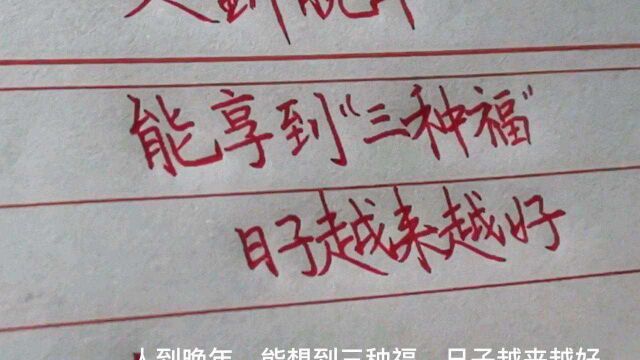 人到晚年
能享到“三种福”
日子越来越好
人到晚年 能想到三种福 日子越来越好